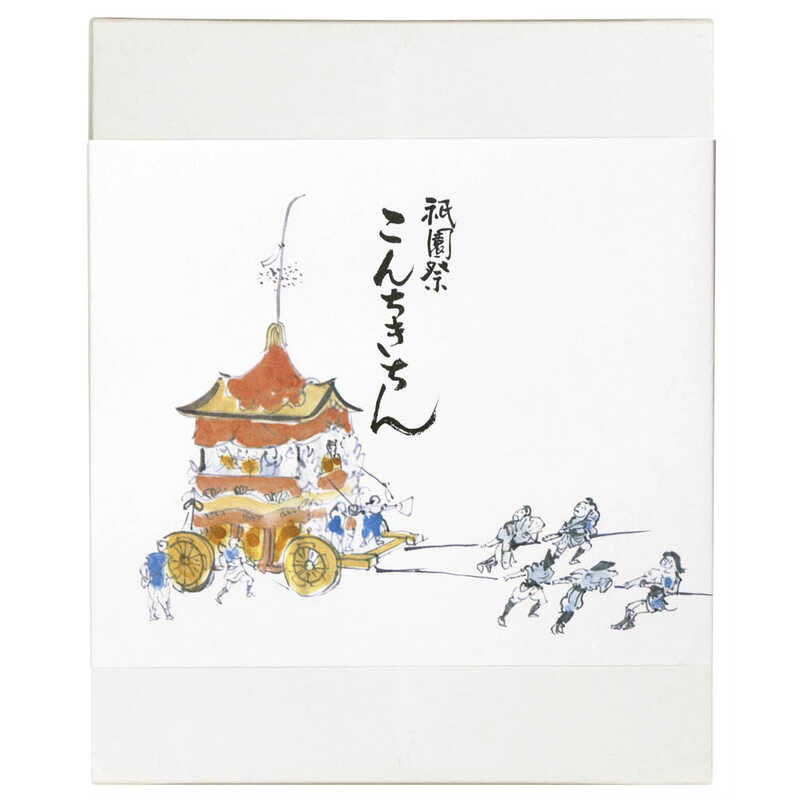 祇園祭
こんちきちん